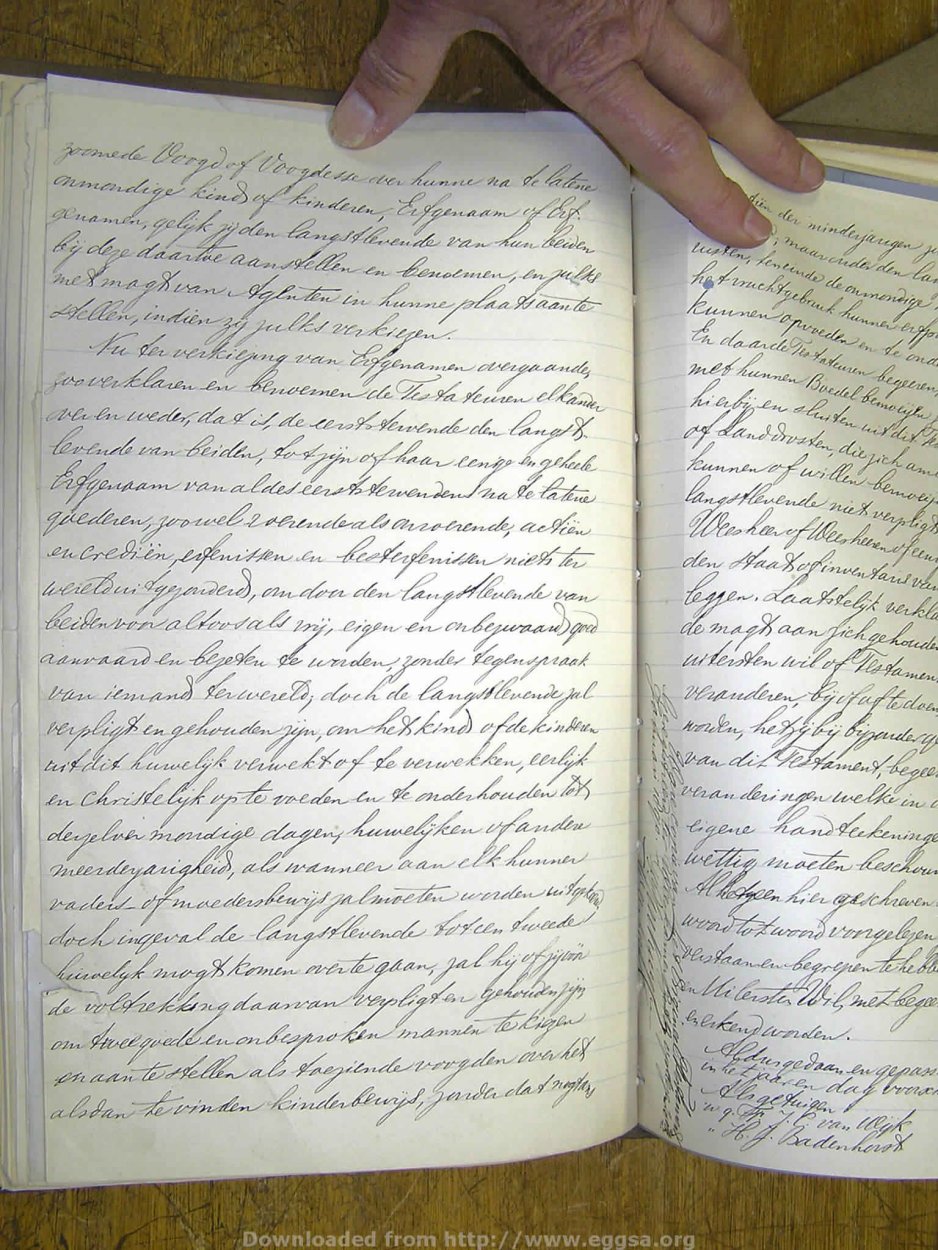 zoomede Voogd of Voogdesse over hunne na te latene
onmondige kind of kinderen, Erfgenaam of Erf-
genamen, gelijk zij den langstlevende van hun beiden
bij deze daartoe aanstellen en benoemen, en zulks
met magt van Adsumtie in hunne plaats aante
stellen, indien zij zulks verkiezen.
Nu ter verkiezing van Erfgenamen overgaande,
zoo verklaren en benoemen de Testateuren elkander
over en weder, dat is, de eerststervende den langst-
levende van beiden, tot zijn of haar eenige en geheele
Erfgenaam van al des eerststervendens na te latene
goederen, zoowel roerende als onroerende, actiën
en crediën, erfenissen en besterfenissen niets ter
wereld uitgezonderd, om door den langstlevende van
beiden voor altoos als vrij, eigen en onbezwaard goed
aanvaard en bezeten te worden, zonder tegenspraak
van iemand ter wereld; doch de langstlevende zal
verpligt en gehouden zijn, om het kind of de kinderen
uit dit huwelijk verwekt of te verwekken, eerlijk
en Christelijk op te voeden en te onderhouden tot
derzelver mondige dagen, huwelijken of andere
meerderjarigheid, als wanneer aan elk hunner
vaders- of moedersbewijs zal moeten worden uitgekeerd
doch ingeval de langstlevende tot een tweede
huwelyk mogt komen over te gaan, zal hij of zij vóór
de voltrekking daarvan verpligt en gehouden zijn
om twee goede en onbesproken mannen te kiezen
en aan te stellen als toeziende voogden over het
alsdan te vinden kinderbewijs, zonder dat nogtans
der minderjarigen
maar onder den lan
teneinde de onmondige
het vruchtgebruik hunner erfpo
kunnen opvoeden en te onde
En daar de Testateuren begeeren,
met hunnen Boedel bemoeijen
hierbij en sluiten uit dit Te
of Landdrosten, die zich am
kunnen of willen bemoeij
langstlevende niet verpligt
Weesheer of Weesheeren of een
den staat of inventaris van
leggen. Laatstelijk verkla
de magt aan zich gehouden
uitersten wil of Testamen
veranderen, bij of af te doen
worden, hetzij bij bijzondere
van dit Testament, begeer
veranderingen welke in
eigene handteekeninge
wettig moeten beschou
Al hetgeen hier geschreven
woord tot woord voorgelezen
verstaan en begrepen te hebb
en Uitersten Wil, met begee
en erkend worden.
Aldus gedaan en gepass
in het jaar en dag voorsc
Als getuigen
w.g. J. C. van Wijk
" H. J. Badenhorst
Downloaded from http://www.eggsa.org